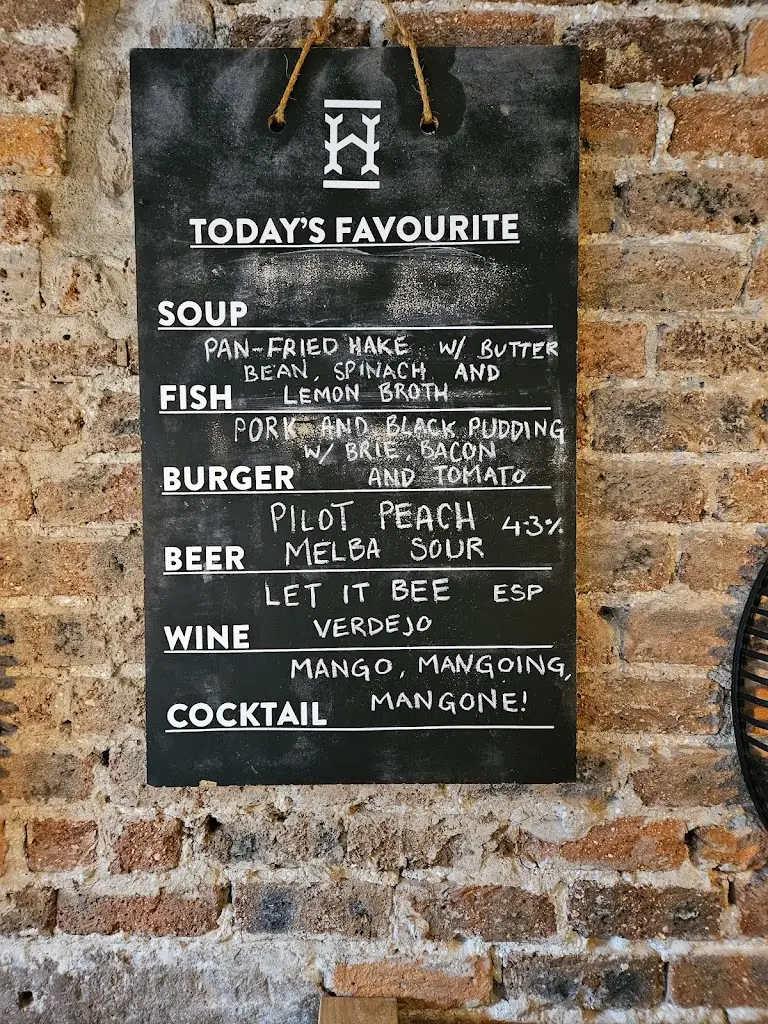 H
TODAY'S FAVOURITE
SOUP
PAN-FRIED HAKE W/ BUTTER
BEAN, SPINACH AND
FISH LEMON BROTH
PORK AND BLACK PUDDING
W/ BRIE, BACON
BURGER AND TOMATO
PILOT PEACH 4.3%
BEER MELBA SOUR
LET IT BEE ESP
WINE VERDEJO
MANGO, MANGOING,
COCKTAIL MANGONE!